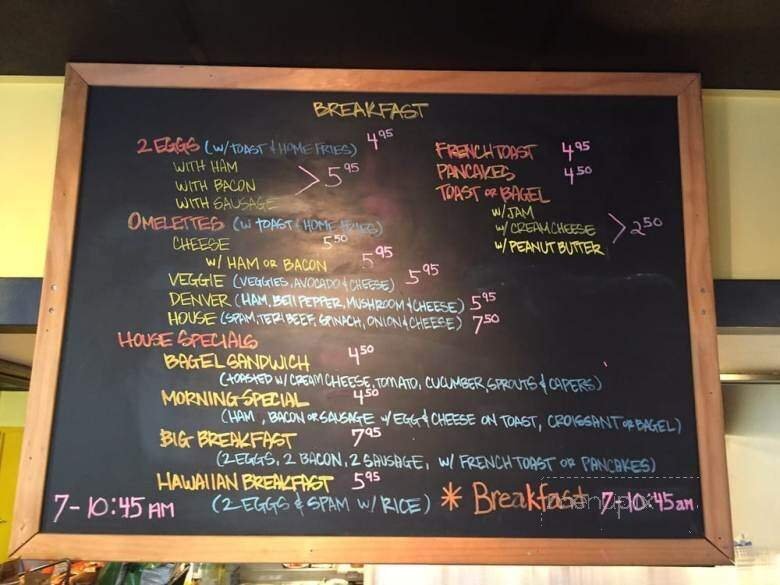 BREAKFAST
2 EGGS (W/TOAST & HOME FRIES) 4.95
WITH HAM
WITH BACON > 5.95
WITH SAUSAGE
OMELETTES (W/ TOAST & HOME FRIES)
CHEESE 5.50
W/ HAM OR BACON 5.95
VEGGIE (VEGGIES, AVOCADO & CHEESE) 5.95
DENVER (HAM, BELL PEPPER, MUSHROOM & CHEESE) 5.95
HOUSE (SPAM, TERI BEEF, SPINACH, ONION & CHEESE) 7.50
FRENCH TOAST 4.95
PANCAKES 4.50
TOAST OR BAGEL
W/ JAM
W/ CREAM CHEESE > 2.50
W/ PEANUT BUTTER
HOUSE SPECIALS
BAGEL SANDWICH 4.50
(TOASTED W/ CREAM CHEESE, TOMATO, CUCUMBER, SPROUTS & CAPERS)
MORNING SPECIAL 4.50
(HAM, BACON OR SAUSAGE W/ EGG & CHEESE ON TOAST, CROISSANT OR BAGEL)
BIG BREAKFAST 7.95
(2 EGGS, 2 BACON, 2 SAUSAGE, W/ FRENCH TOAST OR PANCAKES)
HAWAIIAN BREAKFAST 5.95
(2 EGGS & SPAM W/ RICE)
7-10:45 AM
* Breakfast 7-10:45 am
menupix